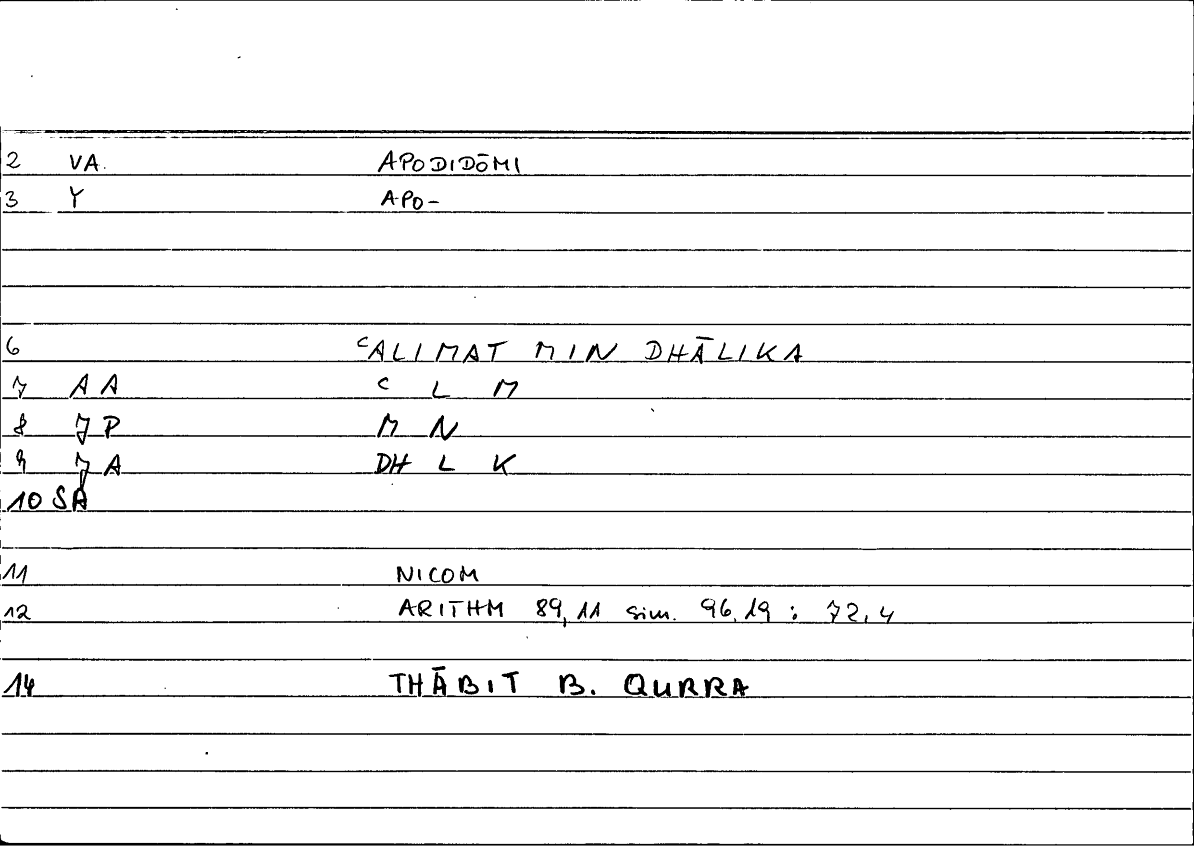 2 VA. APODIDŌMI
3 Y APO-
6 ᶜALIMAT MIN DHĀLIKA
7 AA ᶜ L M
8 JP M N
9 JA DH L K
10 SA
11 NICOM
12 ARITHM 89,11 sim. 96.19 : 72.4
14 THĀBIT B. QURRA